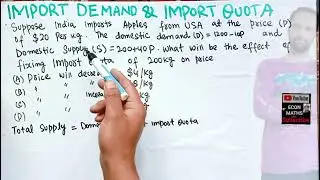 IMPORT DEMAND & IMPORT QUOTA
Suppose India Imports Apples from USA at the price (P)
of $20 Per kg. The domestic demand (D) = 1200-40P and
Domestic Supply (S) = 200+40P. what will be the effect of
fixing Import ta of 200kg on price
(A) Price will decre $4/kg
(B) " " /kg
(C) " " Increa /kg
(D) " " /kg
Total Supply = Dom + import Quota
YouTube
ECON
MATHS